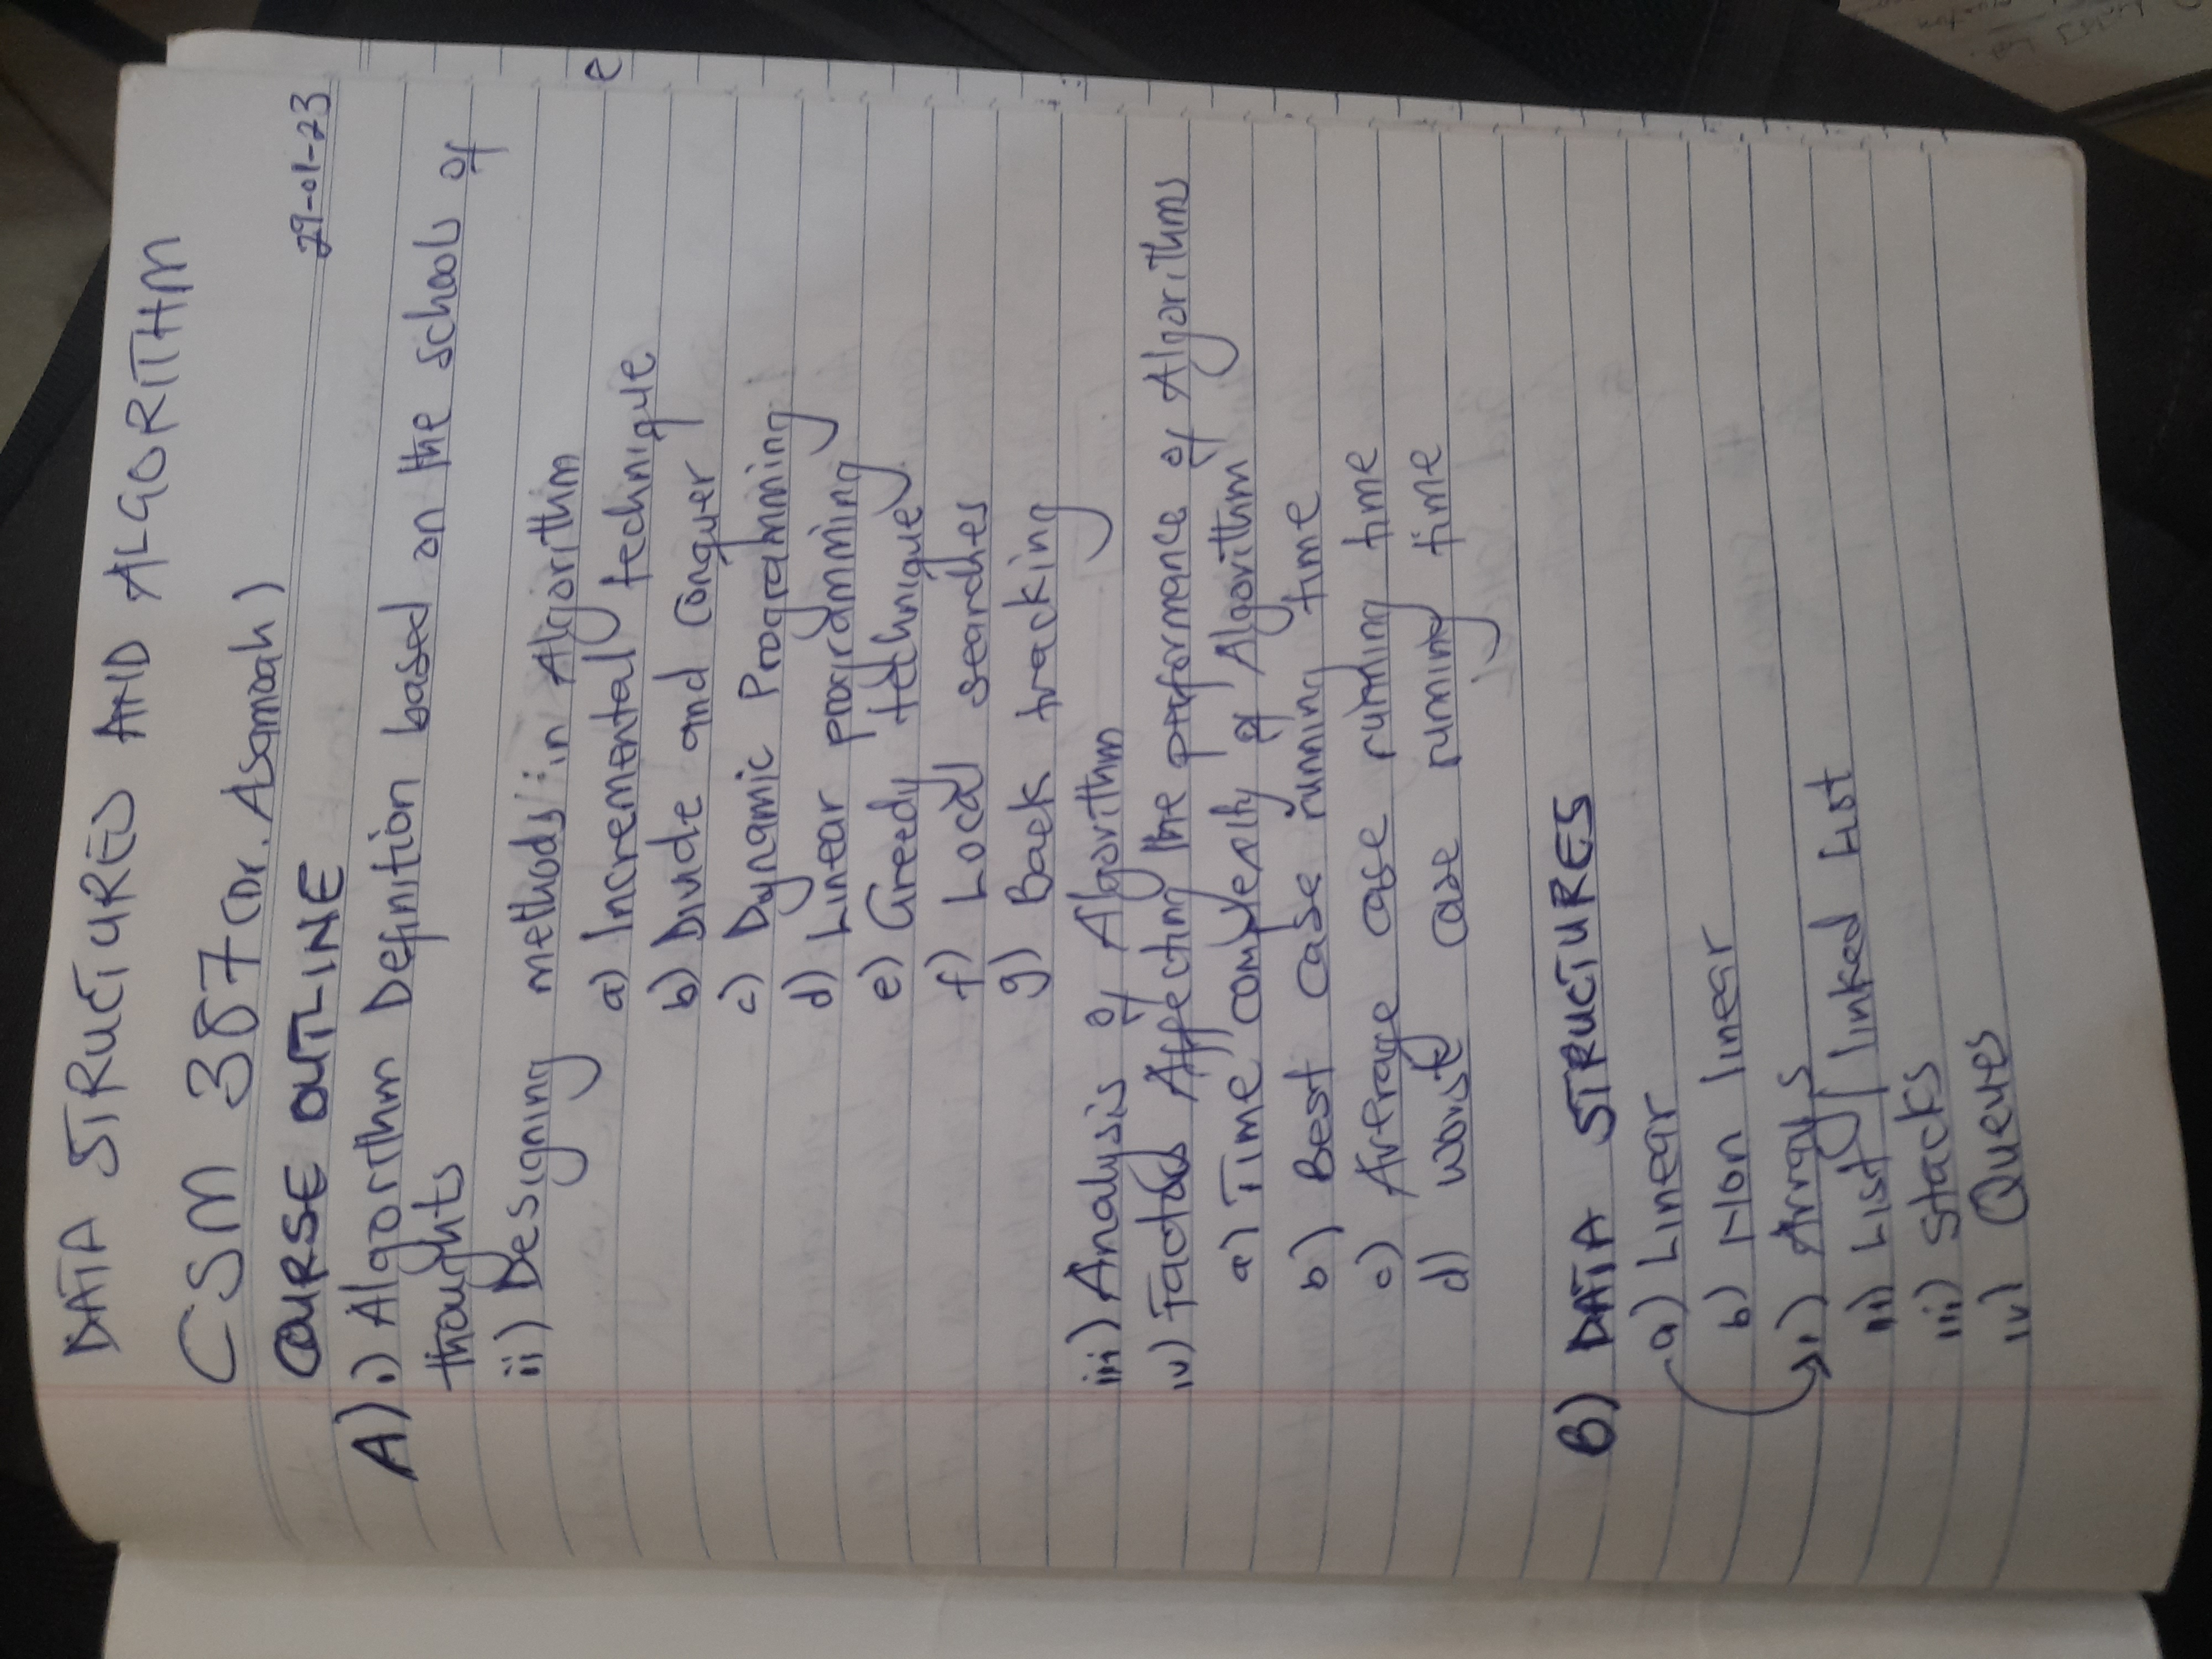 DATA STRUCTURES AND ALGORITHM
CSM 387 (Dr. Asamoah)
COURSE OUTLINE
29-01-23
A) i) Algorithm Definition based on the schools of
thoughts
ii) Designing methods in Algorithm
a) Incremental technique
b) Divide and Conquer
c) Dynamic Programming
d) Linear programming
e) Greedy technique
f) Local searches
g) Back tracking
iii) Analysis of Algorithm
iv) Factors Affecting the performance of Algorithms
a) Time complexity of Algorithm
b) Best case running time
c) Average case running time
d) Worst case running time
B) DATA STRUCTURES
a) Linear
b) Non linear
i) Arrays
ii) List / linked List
iii) Stacks
iv) Queues